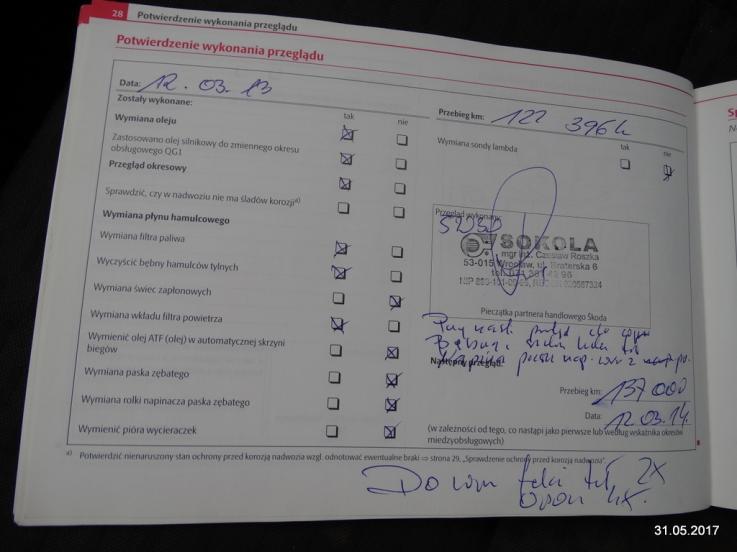 28 Potwierdzenie wykonania przeglądu
Potwierdzenie wykonania przeglądu
Data: 12.03.13
Zostały wykonane:
tak nie
Wymiana oleju
Zastosowano olej silnikowy do zmiennego okresu
obsługowego QG1
Przegląd okresowy
Sprawdzić, czy w nadwoziu nie ma śladów korozji a)
Wymiana płynu hamulcowego
Wymiana filtra paliwa
Wyczyścić bębny hamulców tylnych
Wymiana świec zapłonowych
Wymiana wkładu filtra powietrza
Wymienić olej ATF (olej) w automatycznej skrzyni
biegów
Wymiana paska zębatego
Wymiana rolki napinacza paska zębatego
Wymienić pióra wycieraczek
Przebieg km: 122 396
tak nie
Wymiana sondy lambda
Przegląd wykonany:
SOKOLA
mgr inż. Czesław Roszka
53-015 Wrocław, ul. Braterska 6
Pieczątka partnera handlowego Škoda
Następny przegląd:
Przebieg km: 137 000
Data: 12.03.14.
(w zależności od tego, co nastąpi jako pierwsze lub według wskaźnika okresów
międzyobsługowych)
a) Potwierdzić nienaruszony stan ochrony przed korozją nadwozia wzgl. odnotować ewentualne braki ⇒ strona 29, „Sprawdzenie ochrony przed korozją nadwozia".
Do wym felgi tył 2X
opon 4X.
31.05.2017